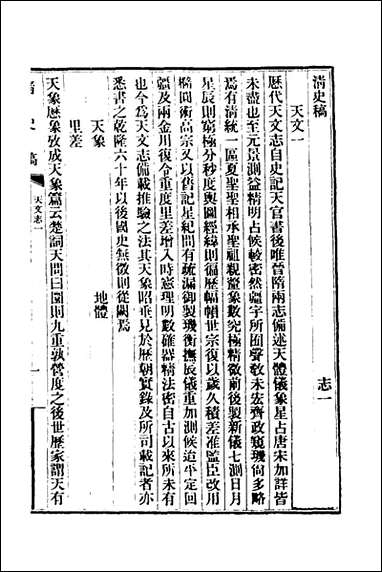 清史稿 志一
天文一
歷代天文志自史記天官書後唯晉隋兩志備述天體儀象星占唐宋加詳皆
未盡也至元景測益精明占候較密然疆宇所囿聲敎未宏齊政窺璣尙多略
焉有淸統一區夏聖聖相承聖祖親釐象數究極精微前後製新儀七測日月
星辰則窮極分秒度輿圖經緯則徧歷幅𢄙世宗復以歲久積差准監臣改用
橢圓術高宗又以舊記星紀間有疏漏御製璣衡撫辰儀重加測候迨平定回
疆及兩金川復令重度里差增入時憲理明數確器精法密自古以來所未有
也今爲天文志備載推驗之法其天象昭垂見於歷朝實錄及所司載記者亦
悉書之乾隆六十年以後國史無徵則從闕焉
天象 地體
里差
天象歷象攷成天象篇云楚詞天問曰圜則九重孰營度之後世歷家謂天有
清史稿 天文志一 一